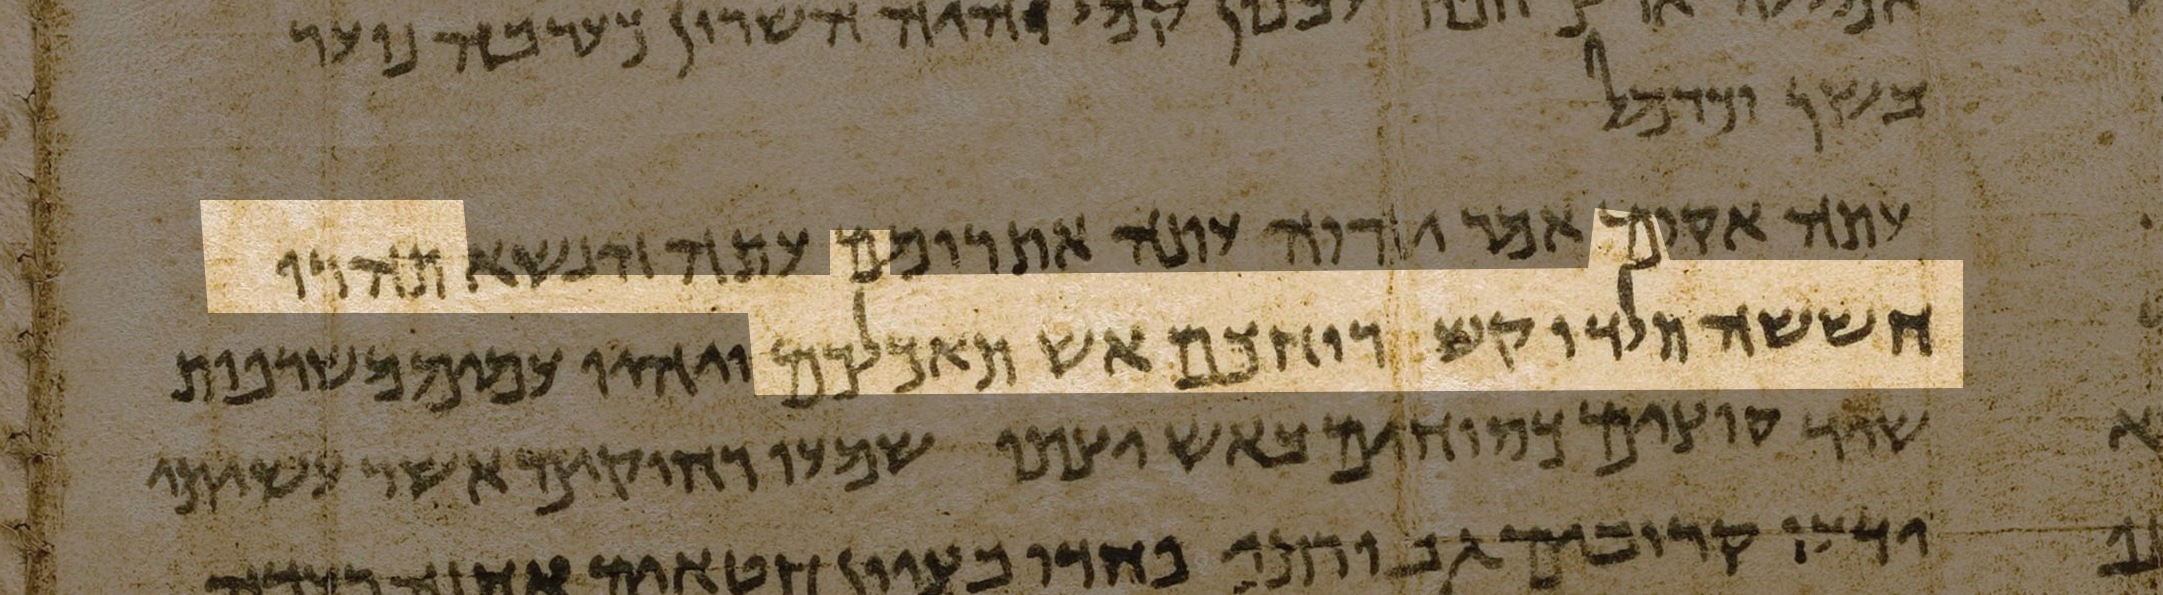 לבנון קמל והיה השרון כערבה נוער
בשן וכרמל
עתה אקום אמר יהוה עתה אתרומם עתה אנשא תהרו
חששה תלדו קש רוחכם אש תאכלכם והיו עמים משרפות
שיד קוצים כסוחים באש יצתו שמעו רחוקים אשר עשיתי
ידעו קרובים גבורתי פחדו בציון חטאים אחזה רעדה